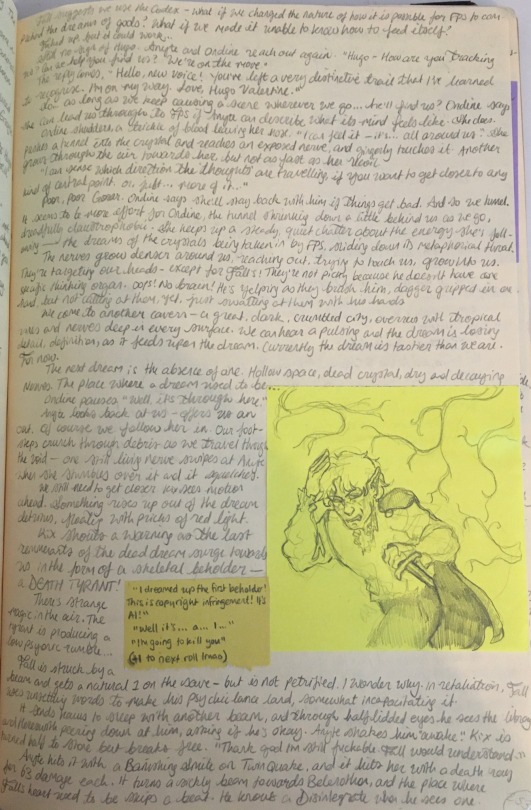 Fall suggests we use the Codex - what if we changed the nature of how it is possible for FPS to con-
the dreams of gods? What if we made it unable to know how to feed itself?
but it could work...
Still no sign of Hugo. Anyte and Ondine reach out again. "Hugo - How are you tracking
us? Can we help you find us? We're on the move."
She replies, "Hello, new voice! You've left a very distinctive trail that I've learned
to recognise. I'm on my way. Love, Hugo Valentine."
So as long as we keep causing a scene wherever we go... he'll find us? Ondine says
she can lead us through to FPS if Anyte can describe what its mind feels like. She does.
Ondine shudders, a trickle of blood leaving her nose. "I can feel it - it's... all around us." She
pushes a tunnel into the crystal and reaches an exposed nerve, and gingerly touches it. Another
grows through the air towards her, but not as fast as her recoil.
"I can sense which direction the thoughts are travelling, if you want to get closer to any
kind of central point, or just... more of it..."
Poor, poor Ondine says she'll stay back with him if things get bad. And so we tunnel.
It seems to be more effort for Ondine, the tunnel shrinking down a little behind us as we go,
dreadfully claustrophobic. She keeps up a steady, quiet chatter about the energy she's follow-
ing - the dreams of the crystals being taken in by FPS, sliding down its metaphorical throat.
The nerves grow denser around us, reaching out, trying to touch us, grow into us.
They're targeting our heads - except for Fall's! They're not picky because he doesn't have one
specific thinking organ. Oops! No brain! He's yelping as they brush him, dagger gripped in one
hand, but not cutting at them, yet, just swatting at them with his hands.
We come to another cavern - a great, dark, crumbled city, overrun with tropical
vines and nerves deep in every surface. We can hear a pulsing and the dream is losing
detail, definition, as it feeds upon the dream. Currently the dream is tastier than we are.
For now.
The next dream is the absence of one. Hollow space, dead crystal, dry and decaying
nerves. The place where a dream used to be.
Ondine pauses. "Well, it's through here."
Anyte looks back at us - offers us an
out. Of course we follow her in. Our foot-
steps crunch through debris as we travel through
the void - one still living nerve swipes at Anyte
when she stumbles over it and it squelches.
We still need to get closer. Kix sees motion
ahead. Something rises up out of the dream
detritus, floating with pricks of red light.
Kix shouts a warning as the last
remnants of the dead dream surge towards
us in the form of a skeletal beholder -
a DEATH TYRANT!
There's strange
magic in the air. The
tyrant is producing a
low psionic rumble...
Fall is struck by a
beam and gets a natural 1 on the save - but is not petrified. I wonder why. In retaliation, Fall
uses unsettling words to make his psychic lance land, somewhat incapacitating it.
It sends him to sleep with another beam, and through half lidded eyes he sees the library
and peering down at him, asking if he's okay. Anyte shakes him awake. Kix is
turned half to stone but breaks free. "Thank god I'm still fuckable. Fall would understand."
Anyte hits it with a Banishing Smite on Twinquake, and it hits her with a death ray
for 63 damage each. It turns a sickly beam towards Belerathon, and the place where
Fall's heart used to be skips a beat. He knows a Disintegrate when he sees one
"I dreamed up the first beholder!
This is copyright infringement! It's
AI!"
"Well it's... a... I..."
"I'm going to kill you"
(to next roll lmao)